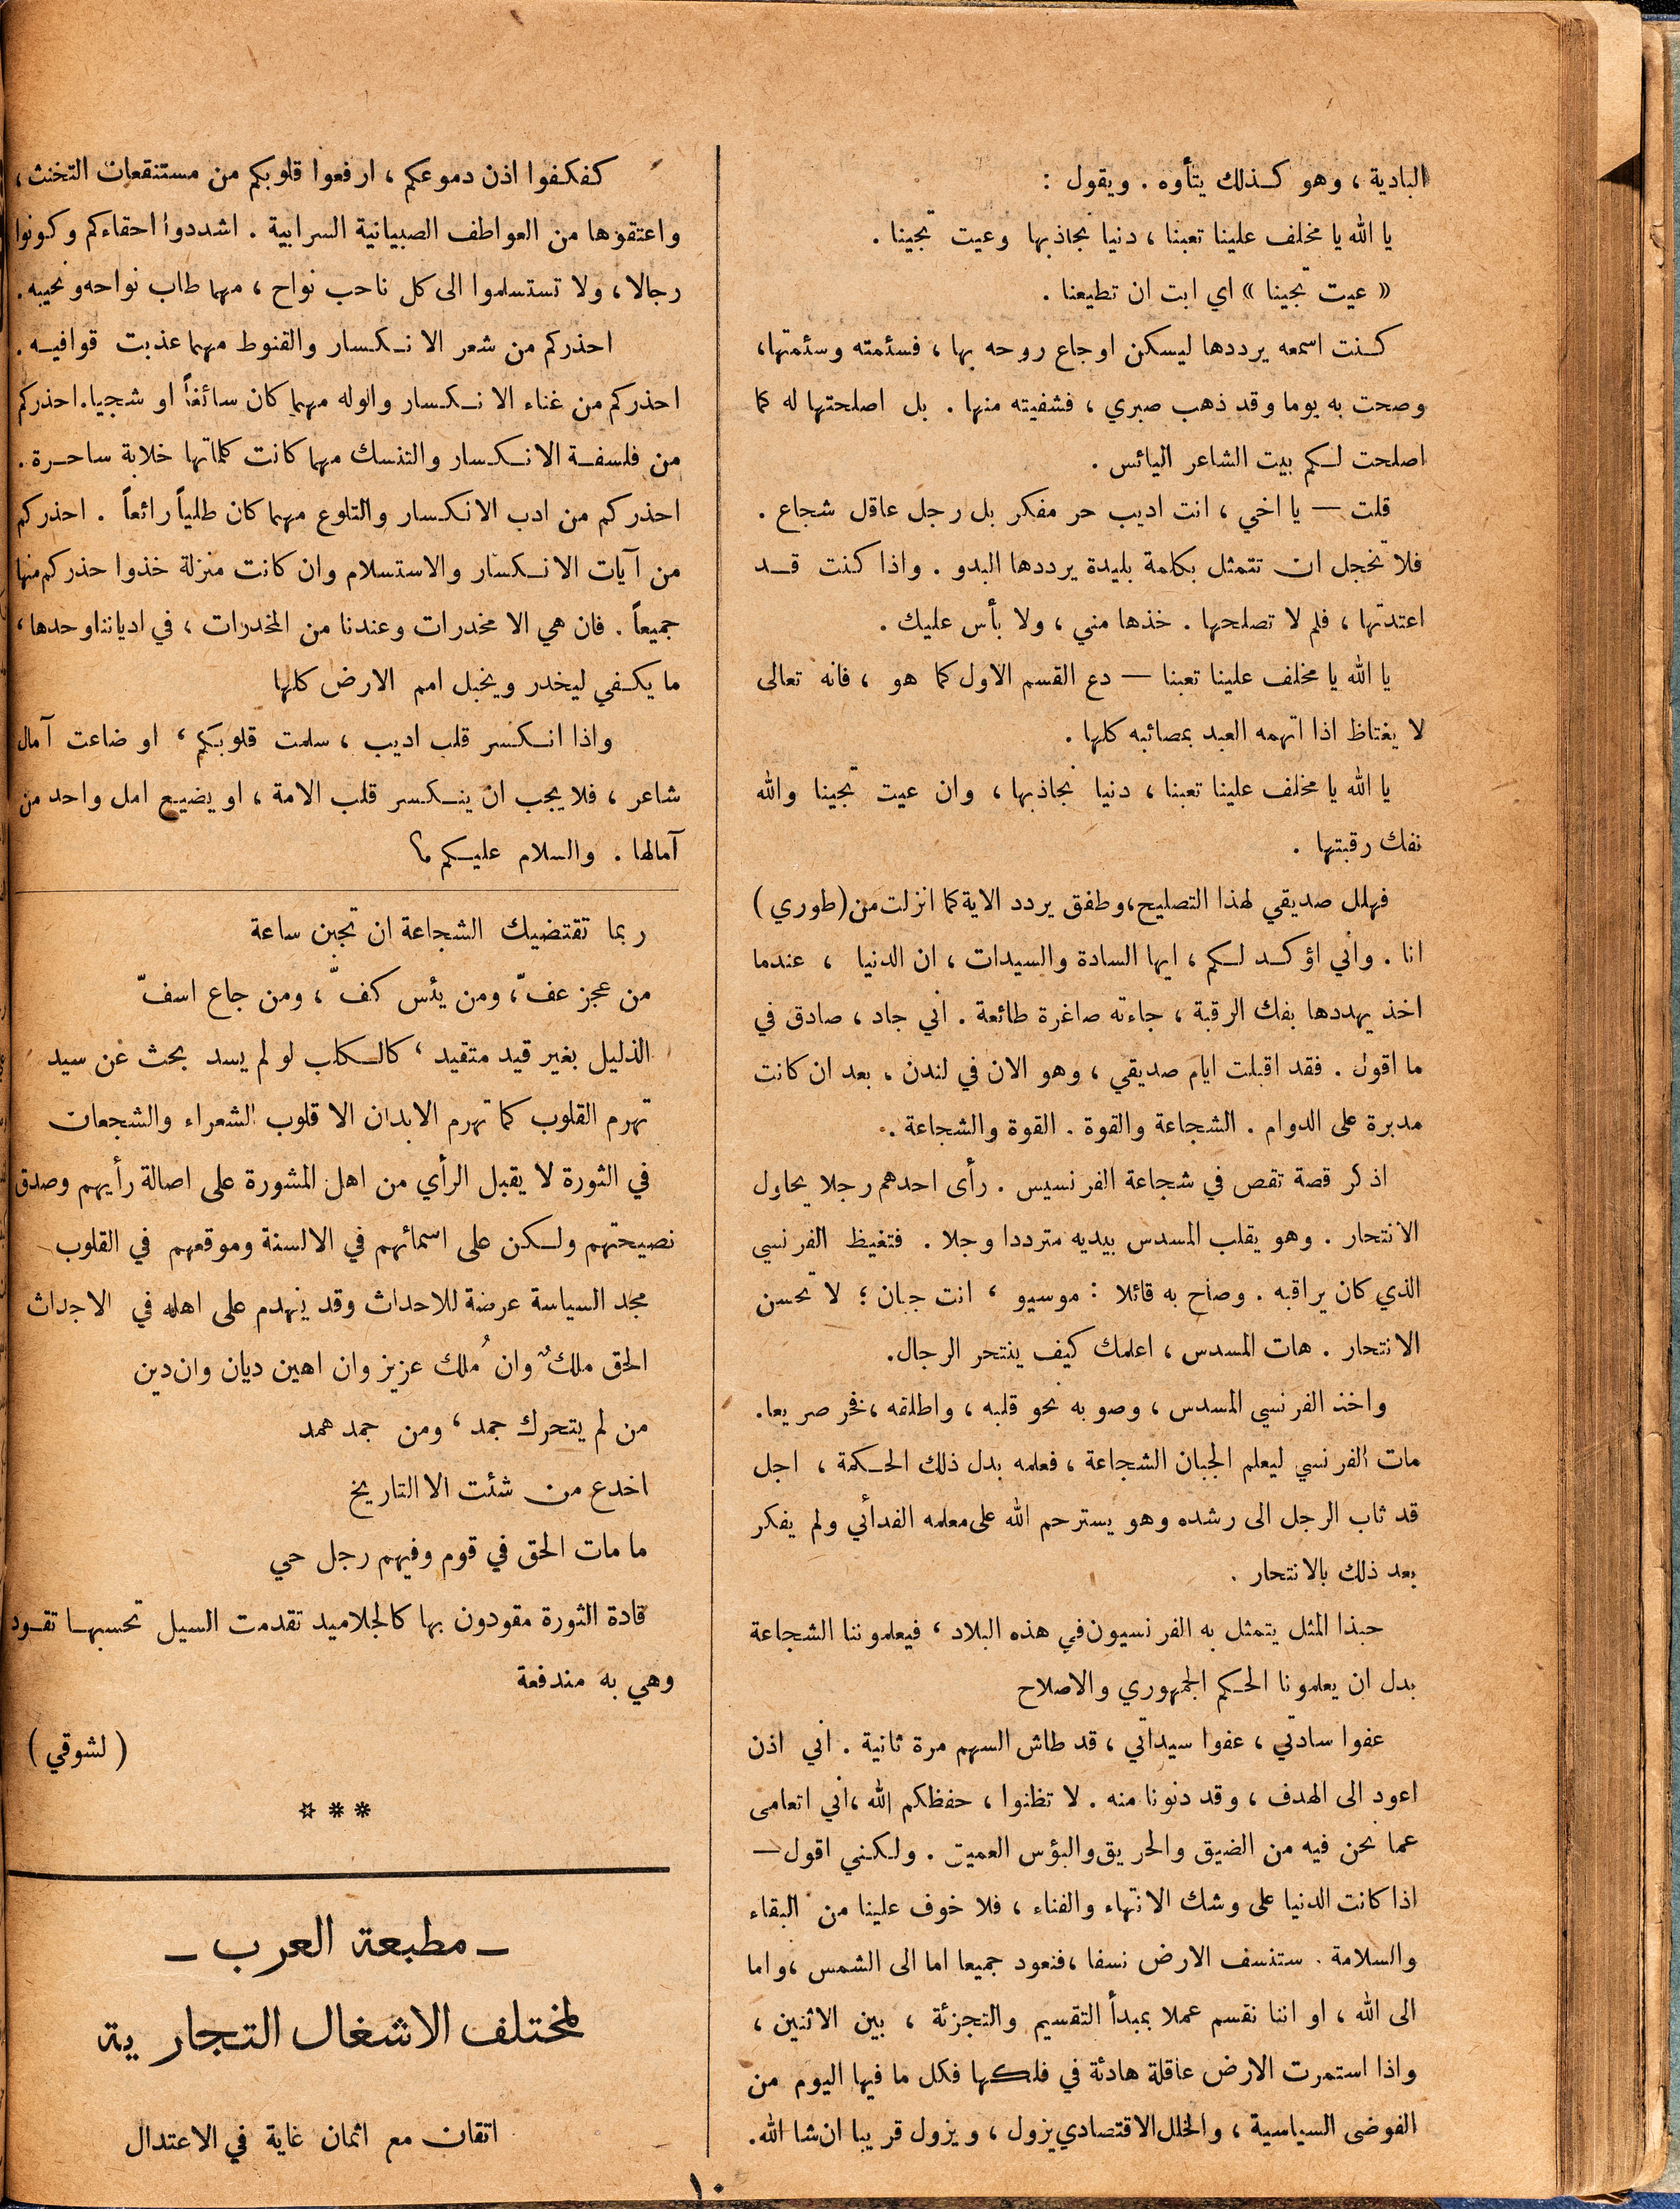 البادية ، وهو كذلك يتأوه . ويقول :
يا الله يا مخلف علينا تعبنا ، دنيا نجاذبها وعيت تجينا .
« عيت تجينا » اي ابت ان تطيعنا .
كنت اسمعه يرددها ليسكن اوجاع روحه بها ، فسئمته وسئمتها،
وصحت به يوما وقد ذهب صبري ، فشفيته منها . بل اصلحتها له كما
اصلحت لكم بيت الشاعر اليائس .
قلت — يا اخي ، انت اديب حر مفكر بل رجل عاقل شجاع .
فلا تخجل ان تتمثل بكلمة بليدة يرددها البدو . واذا كنت قد
اعتدتها ، فلم لا تصلحها . خذها مني ، ولا بأس عليك .
يا الله يا مخلف علينا تعبنا — دع القسم الاول كما هو ، فانه تعالى
لا يغتاظ اذا اتهمه العبد بمصائبه كلها .
يا الله يا مخلف علينا تعبنا ، دنيا نجاذبها ، وان عيت تجينا والله
نفك رقبتها .
فهلل صديقي لهذا التصليح، وطفق يردد الاية كما انزلت من (طوري)
انا . واني اؤكد لكم ، ايها السادة والسيدات ، ان الدنيا ، عندما
اخذ يهددها بفك الرقبة ، جاءته صاغرة طائعة . اني جاد ، صادق في
ما اقول . فقد اقبلت ايام صديقي ، وهو الان في لندن ، بعد ان كانت
مدبرة على الدوام . الشجاعة والقوة . القوة والشجاعة .
اذكر قصة تقص في شجاعة الفرنسيس . رأى احدهم رجلا يحاول
الانتحار . وهو يقلب المسدس بيديه مترددا وجلا . فتغيظ الفرنسي
الذي كان يراقبه . وصاح به قائلا : موسيو ، انت جبان ؛ لا تحسن
الانتحار . هات المسدس ، اعلمك كيف ينتحر الرجال.
واخذ الفرنسي المسدس ، وصوبه نحو قلبه ، واطلقه ، فخر صريعا.
مات الفرنسي ليعلم الجبان الشجاعة ، فعلمه بدل ذلك الحكمة ، اجل
قد ثاب الرجل الى رشده وهو يسترحم الله على معلمه الفدائي ولم يفكر
بعد ذلك بالانتحار .
حبذا المثل يتمثل به الفرنسيون في هذه البلاد ، فيعلموننا الشجاعة
بدل ان يعلمونا الحكم الجمهوري والاصلاح
عفوا سادتي ، عفوا سيداتي ، قد طاش السهم مرة ثانية . اني اذن
اعود الى الهدف ، وقد دنونا منه . لا تظنوا ، حفظكم الله ، اني اتعامى
عما نحن فيه من الضيق والحريق والبؤس العميق . ولكني اقول —
اذا كانت الدنيا على وشك الانتهاء والفناء ، فلا خوف علينا من البقاء
والسلامة . ستنسف الارض نسفا ، فنعود جميعا اما الى الشمس ، واما
الى الله ، او اننا نقسم عملا بمبدأ التقسيم والتجزئة ، بين الاثنين ،
واذا استمرت الارض عاقلة هادئة في فلكها فكل ما فيها اليوم من
الفوضى السياسية ، والخلل الاقتصادي يزول ، ويزول قريبا ان شا الله.
كفكفوا اذن دموعكم ، ارفعوا قلوبكم من مستنقعات التخنث ،
واعتقوها من العواطف الصبيانية السرابية . اشددوا احقاءكم وكونوا
رجالا ، ولا تستسلموا الى كل ناحب نواح ، مهما طاب نواحه ونحيبه.
احذركم من شعر الانكسار والقنوط مهما عذبت قوافيه .
احذركم من غناء الانكسار والوله مهما كان سائغاً او شجيا. احذركم
من فلسفة الانكسار والتنسك مهما كانت كلماتها خلابة ساحرة .
احذركم من ادب الانكسار والتلوع مهما كان طلياً رائعاً . احذركم
من آيات الانكسار والاستسلام وان كانت منزلة خذوا حذركم منها
جميعاً . فان هي الا مخدرات وعندنا من المخدرات ، في ادياننا وحدها ،
ما يكفي ليخدر ويخبل امم الارض كلها
واذا انكسر قلب اديب ، سلمت قلوبكم ، او ضاعت آمال
شاعر ، فلا يجب ان ينكسر قلب الامة ، او يضيع امل واحد من
آمالها . والسلام عليكم ؟
ربما تقتضيك الشجاعة ان تجبن ساعة
من عجز عفّ ، ومن يئس كفّ ، ومن جاع اسفّ
الذليل بغير قيد متقيد ، كالكلب لو لم يسد بحث عن سيد
تهرم القلوب كما تهرم الابدان الا قلوب الشعراء والشجعان
في الثورة لا يقبل الرأي من اهل المشورة على اصالة رأيهم وصدق
نصيحتهم ولكن على اسمائهم في الالسنة وموقعهم في القلوب
مجد السياسة عرضة للاحداث وقد ينهدم على اهله في الاجداث
الحق ملكٌ وان مُلك عزيز وان اهين ديان وان دين
من لم يتحرك جمد ، ومن جمد همد
اخدع من شئت الا التاريخ
ما مات الحق في قوم وفيهم رجل حي
قادة الثورة مقودون بها كالجلاميد تقدمت السيل تحسبها تقود
وهي به مندفعة
( لشوقي )
***
— مطبعة العرب —
لمختلف الاشغال التجارية
اتقان مع اثمان غاية في الاعتدال
١٠